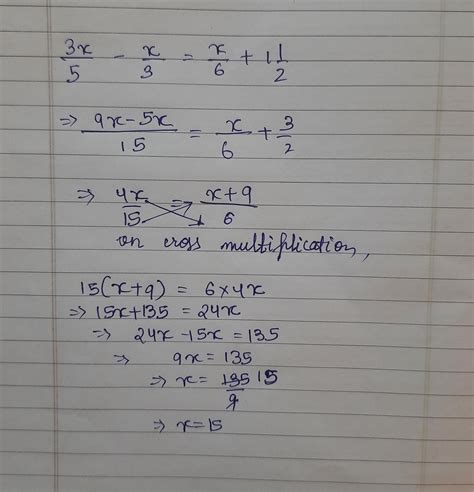 3x/5 - x/3 = x/6 + 1 1/2
⇒ 9x-5x/15 = x/6 + 3/2
⇒ 4x/15 = x+9/6
on cross multiplication,
15(x+9) = 6×4x
⇒ 15x+135 = 24x
⇒ 24x-15x = 135
⇒ 9x = 135
⇒ x = 135/9 15
⇒ x=15